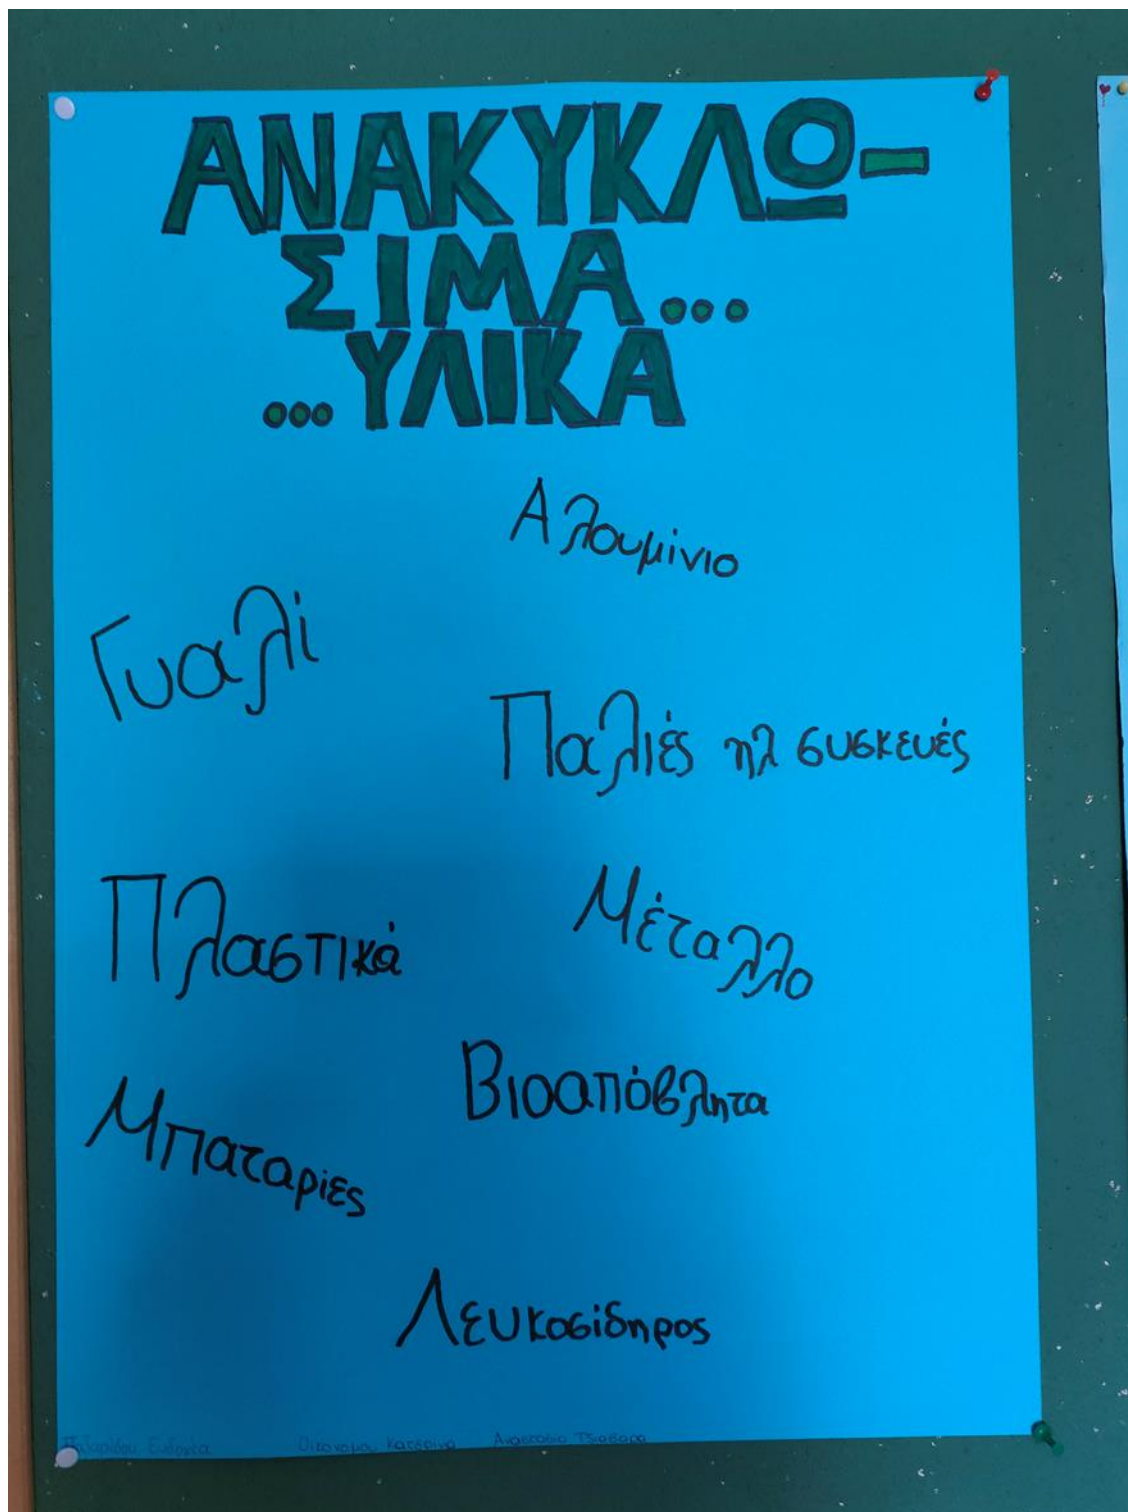 ΑΝΑΚΥΚΛΩ-
ΣΙΜΑ...
...ΥΛΙΚΑ
Αλουμίνιο
Γυαλί
Παλιές ηλ συσκευές
Πλαστικά
Μέταλλο
Βιοαπόβλητα
Μπαταρίες
Λευκοσίδηρος
Οικονόμου Κατερίνα Αναστασία